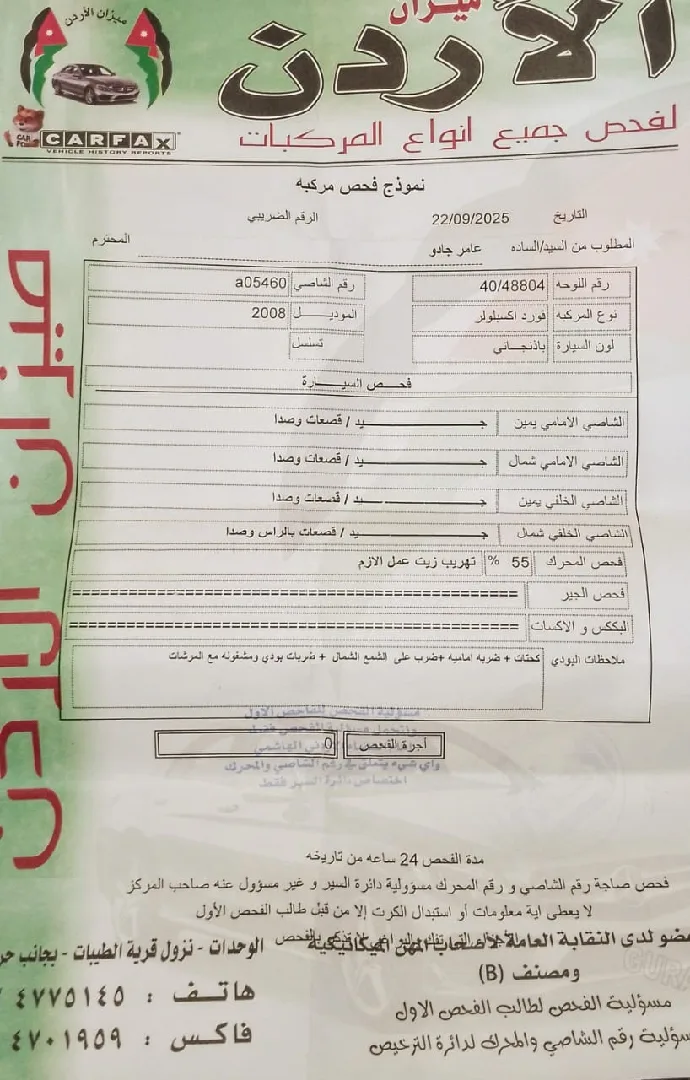 ميزان الأردن
ميزان
الأردن
CAR FOX
CARFAX
VEHICLE HISTORY REPORTS
لفحص جميع انواع المركبات
نموذج فحص مركبه
التاريخ 22/09/2025 الرقم الضريبي
المطلوب من السيد/الساده عامر جادو المحترم
رقم اللوحه 40/48804 رقم لشاصي a05460
نوع المركبه فورد اكسبلولر الموديل 2008
لون السيارة باذنجاني تسسل
فحص السيارة
الشاصي الامامي يمين جيد / قصعات وصدا
الشاصي الامامي شمال جيد / قصعات وصدا
الشاصي الخلفي يمين جيد / قصعات وصدا
الشاصي الخلفي شمال جيد / قصعات بالراس وصدا
فحص المحرك 55 % تهريب زيت عمل الازم
فحص الجير ================================
لبككس و الاكسات ================================
ملاحظات البودي كحتات + ضربه اماميه +ضرب على الشمع الشمال + ضربات بودي ومشغوله مع المرشات
مسؤولية الفحص للفاحص الاول
أجرة الفحص 0
واي شيء يتعلق في رقم الشاصي والمحرك
اختصاص دائرة السير فقط
مدة الفحص 24 ساعه من تاريخه
فحص صاجة رقم الشاصي و رقم المحرك مسوولية دائرة السير و غير مسؤول عنه صاحب المركز
لا يعطى اية معلومات أو استبدال الكرت إلا من قبل طالب الفحص الأول
ضو لدى النقابة العامة لاصحاب المهن الميكانيكية
ومصنف (B)
مسؤلية الفحص لطالب الفحص الاول
سؤلية رقم الشاصي والمحرك لدائرة الترخيص
الوحدات - نزول قرية الطيبات - بجانب
هاتف : ٤٧٧٥١٤٥
فاكس : ٤٧٠١٩٥٩
ميزان الاردن